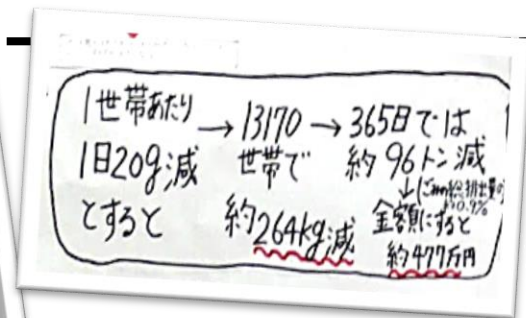 1世帯あたり
1日20g減
とすると
→13170
世帯で
約264kg減
→365日では
約96トン減
↓ごみの総排出量の
約0.9%
金額にすると
約477万円